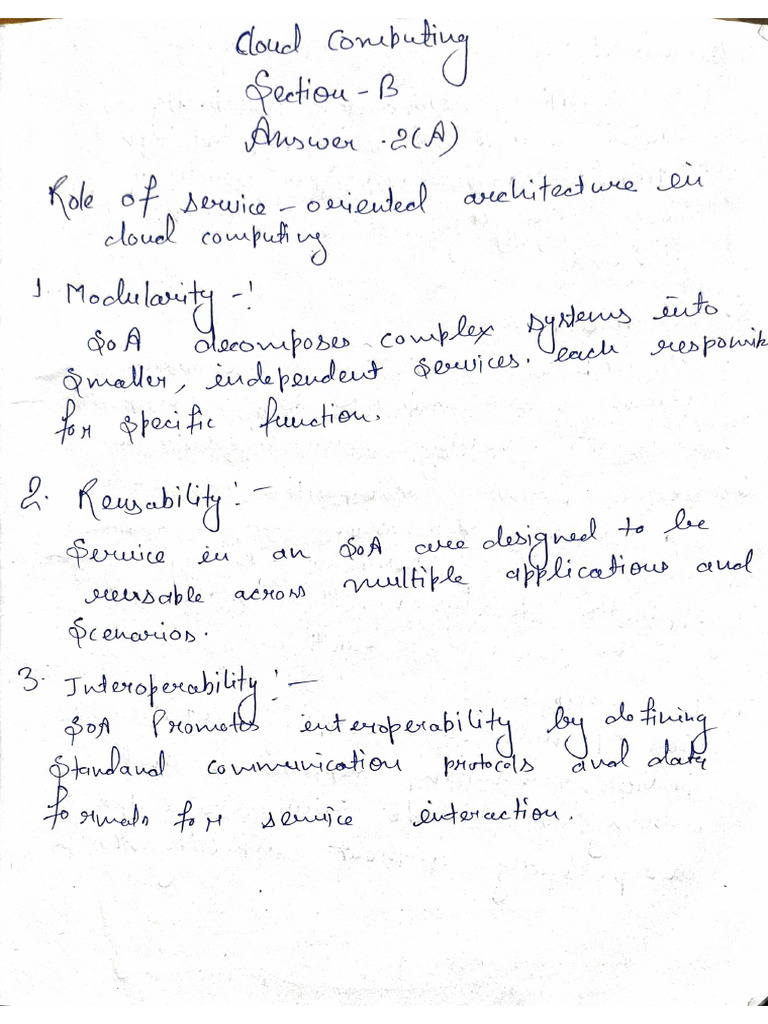 Cloud Computing
Section - B
Answer .2(A)
Role of service - oriented architecture in
cloud computing
1. Modularity -:
SOA decomposes complex systems into
smaller, independent services. each responsib
for specific function.
2. Reusability : -
Service in an SOA are designed to be
reusable across multiple applications and
Scenarios.
3. Interoperability : -
SOA Promotes interoperability by defining
Standand communication protocols and data
formats for service interaction.